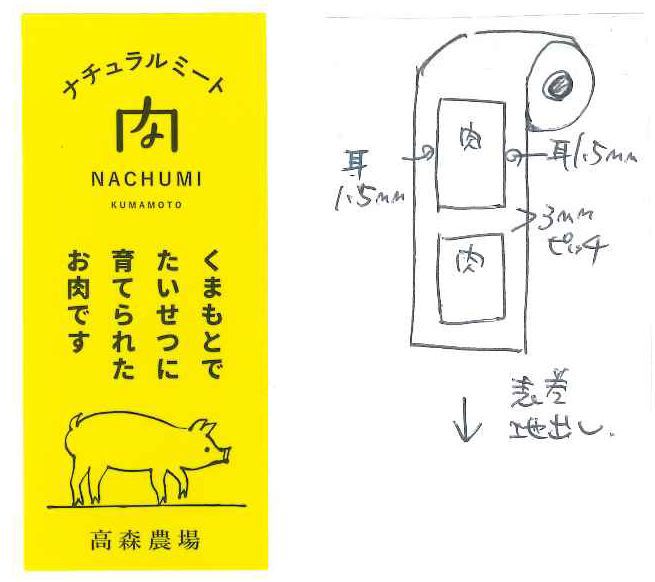 ナチュラルミート
NACHUMI
KUMAMOTO
くまもとで
たいせつに
育てられた
お肉です
高森農場
肉
耳
1.5mm
耳1.5mm
3mm
ピッチ
肉
表巻
地出し.